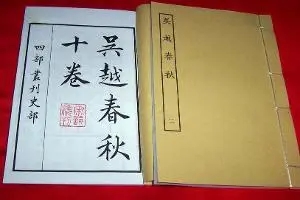 吳越春秋
十卷
四部叢刊史部
吳越春秋
二